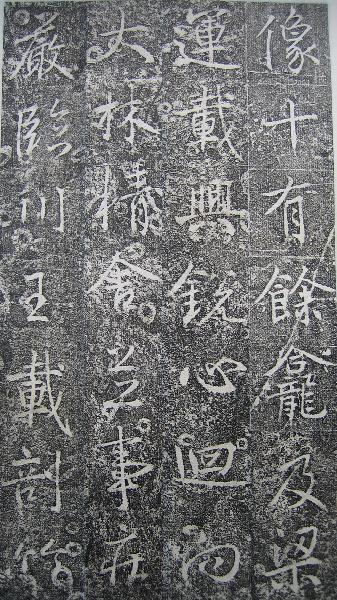 像十有餘龕及梁
運載興銳心迴向
大林精舍並事莊
嚴臨川王載剖